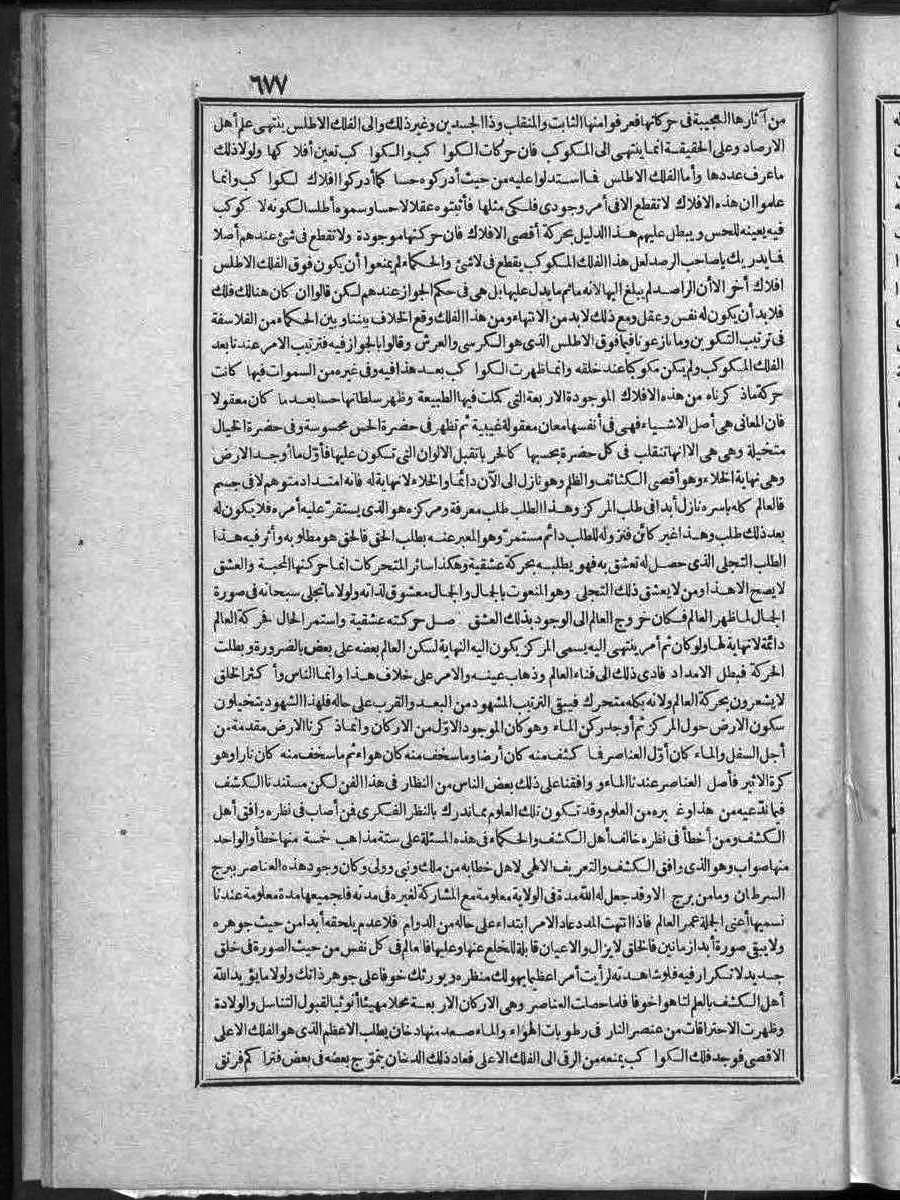 ٦٧٧
من آثارها العجيبة فى حركاتها فعرفوا منها الثابت والمنقلب وذا الجسدين وغير ذلك والى الفلك الاطلس ينتهى علم أهل
الارصاد وعلى الحقيقة انما ينتهى الى المكوكب فان حركات الكواكب والكواكب تعين أفلاكها ولولا ذلك
ما عرف عددها وأما الفلك الاطلس فما استدلوا عليه من حيث أدركوه حسا كما أدركوا افلاك الكواكب وانما
علموا ان هذه الافلاك لا تقطع الا فى أمر وجودى فلكى مثلها فأثبتوه عقلا لا حسا وسموه أطلسا لكونه لا كوكب
فيه يعينه للحس ويبطل عليهم هذا الدليل بحركة أقصى الافلاك فان حركتها موجودة ولا تقطع فى شئ عندهم أصلا
فما يدريك يا صاحب الرصد لعل هذا الفلك المكوكب يقطع فى لا شئ والحكماء لم يمنعوا أن يكون فوق الفلك الاطلس
افلاك أخر الا أن الراصد لم يبلغ اليها لانه ما ثم ما يدل عليها بل هى فى حكم الجواز عندهم لكن قالوا ان كان هنالك فلك
فلا بد أن يكون له نفس وعقل ومع ذلك لا بد من الانتهاء ومن هذا الفلك وقع الخلاف بيننا وبين الحكماء من الفلاسفة
فى ترتيب التكوين وما نازعونا فيما فوق الاطلس الذى هو الكرسى والعرش وقالوا بالجواز فيه فترتيب الامر عندنا بعد
الفلك المكوكب ولم يكن مكوكبا عند خلقه وانما ظهرت الكواكب بعد هذا فيه وفى غيره من السموات فيها كانت
حركة ما ذكرناه من هذه الافلاك الموجودة الاربعة التى كملت فيها الطبيعة وظهر سلطانها حسا بعد ما كان معقولا
فان المعانى هى أصل الاشياء فهى فى أنفسها معان معقولة غيبية ثم تظهر فى حضرة الحس محسوسة وفى حضرة الخيال
متخيلة وهى هى الا انها تنقلب فى كل حضرة بحسبها كالحرباء تقبل الالوان التى تكون عليها فأول ما أوجد الارض
وهى نهاية الخلاء وهو أقصى الكثائف والظلم وهو نازل الى الآن دائما والخلاء لا نهاية له فانه امتداد متوهم لا فى جسم
فالعالم كله باسره نازل أبدا فى طلب المركز وهذا الطلب طلب معرفة ومركزه هو الذى يستقر عليه أمره فلا يكون له
بعد ذلك طلب وهذا غير كائن فنزوله للطلب دائم مستمر وهو المعبر عنه بطلب الحق فالحق هو مطلوبه وأثر فيه هذا
الطلب التجلى الذى حصل له تعشق به فهو يطلبه بحركة عشقية وهكذا سائر المتحركات انما حركتها المحبة والعشق
لا يصح الا هذا ومن لا يعشق ذلك التجلى وهو المنعوت بالجمال والجمال معشوق لذاته ولولا ما تجلى سبحانه فى صورة
الجمال لما ظهر العالم فكان خروج العالم الى الوجود بذلك العشق حركته عشقية واستمر الحال فحركة العالم
دائمة لا نهاية لها ولو كان ثم أمر ينتهى اليه يسمى المركز يكون اليه النهاية لسكن العالم بعضه على بعض بالضرورة وبطلت
الحركة فبطل الامداد فادى ذلك الى فناء العالم وذهاب عينه والامر على خلاف هذا وانما الناس وأكثر الخلق
لا يشعرون بحركة العالم ولانه بكله متحرك فيبقى الترتيب المشهود من البعد والقرب على حاله فلهذا الشهود يتخيلون
سكون الارض حول المركز ثم أوجد ركن الماء وهو كان الموجود الاول من الاركان وانما ذكرنا الارض مقدمة من
أجل السفل والماء كان أول العناصر فما كثف منه كان أرضا وما سخف منه كان هواء ثم ما سخف منه كان نارا وهو
كرة الاثير فأصل العناصر عندنا الماء ووافقنا على ذلك بعض الناس من النظار فى هذا الفن لكن مستندنا الكشف
فيما ندعيه من هذا وغيره من العلوم وقد تكون تلك العلوم مما ندرك بالنظر الفكرى فمن أصاب فى نظره وافق أهل
الكشف ومن أخطأ فى نظره خالف أهل الكشف والحكماء فى هذه المسئلة على ستة مذاهب خمسة منها خطأ والواحد
منها صواب وهو الذى وافق الكشف والتعريف الالهى لاهل خطابه من ملك ونبى وولى وكان وجود هذه العناصر ببرج
السرطان وما من برج الا وقد جعل له الله مدة فى الولاية معلومة مع المشاركة لغيره فى مدته فلجميعها مدة معلومة عندنا
نسميها أعنى الجملة عمر العالم فاذا انتهت المدد عاد الامر ابتداء على حاله من الدوام فلا عدم يلحقه أبدا من حيث جوهره
ولا يبقى صورة أبدا زمانين فالخلق لا يزال والاعيان قابلة للخلع عنها وعليها فالعالم فى كل نفس من حيث الصورة فى خلق
جديد لا تكرار فيه فلو شاهدته لرأيت أمرا عظيما يهولك منظره ويورثك خوفا على جوهر ذاتك ولولا ما يؤيد الله
أهل الكشف بالعلم لتاهوا خوفا فلما حصلت العناصر وهى الاركان الاربعة محلا مهيئا أنوثيا لقبول التناسل والولادة
وظهرت الاحتراقات من عنصر النار فى رطوبات الهواء والماء صعد منها دخان يطلب الاعظم الذى هو الفلك الاعلى
الاقصى فوجد فلك الكواكب يمنعه من الرقى الى الفلك الاعلى فعاد ذلك الدخان يتموج بعضه فى بعض فتراكم فرتق